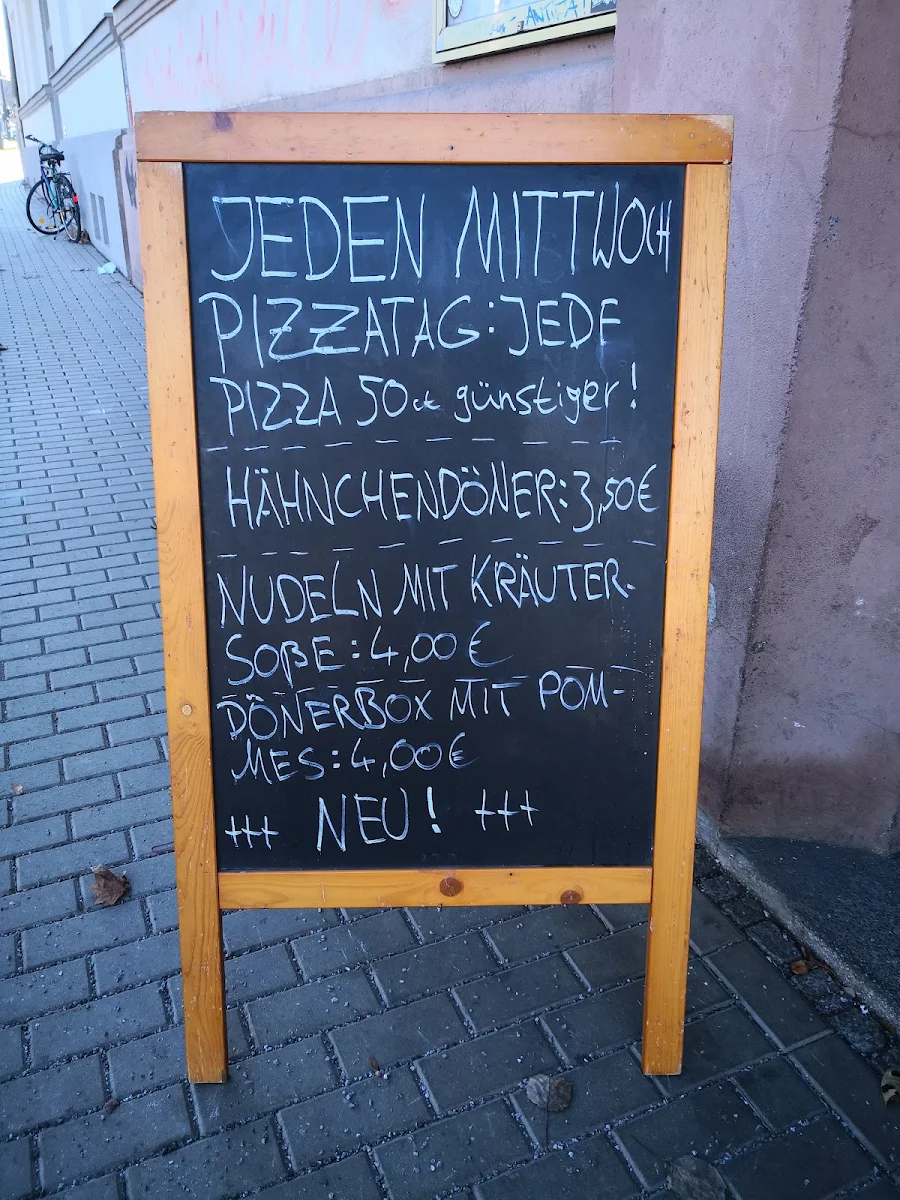 JEDEN MITTWOCH
PIZZATAG: JEDE
PIZZA 50ct günstiger!
HÄHNCHENDÖNER: 3,50€
NUDELN MIT KRÄUTER-
SOßE: 4,00€
DÖNERBOX MIT POM-
MES: 4,00€
+++ NEU! +++